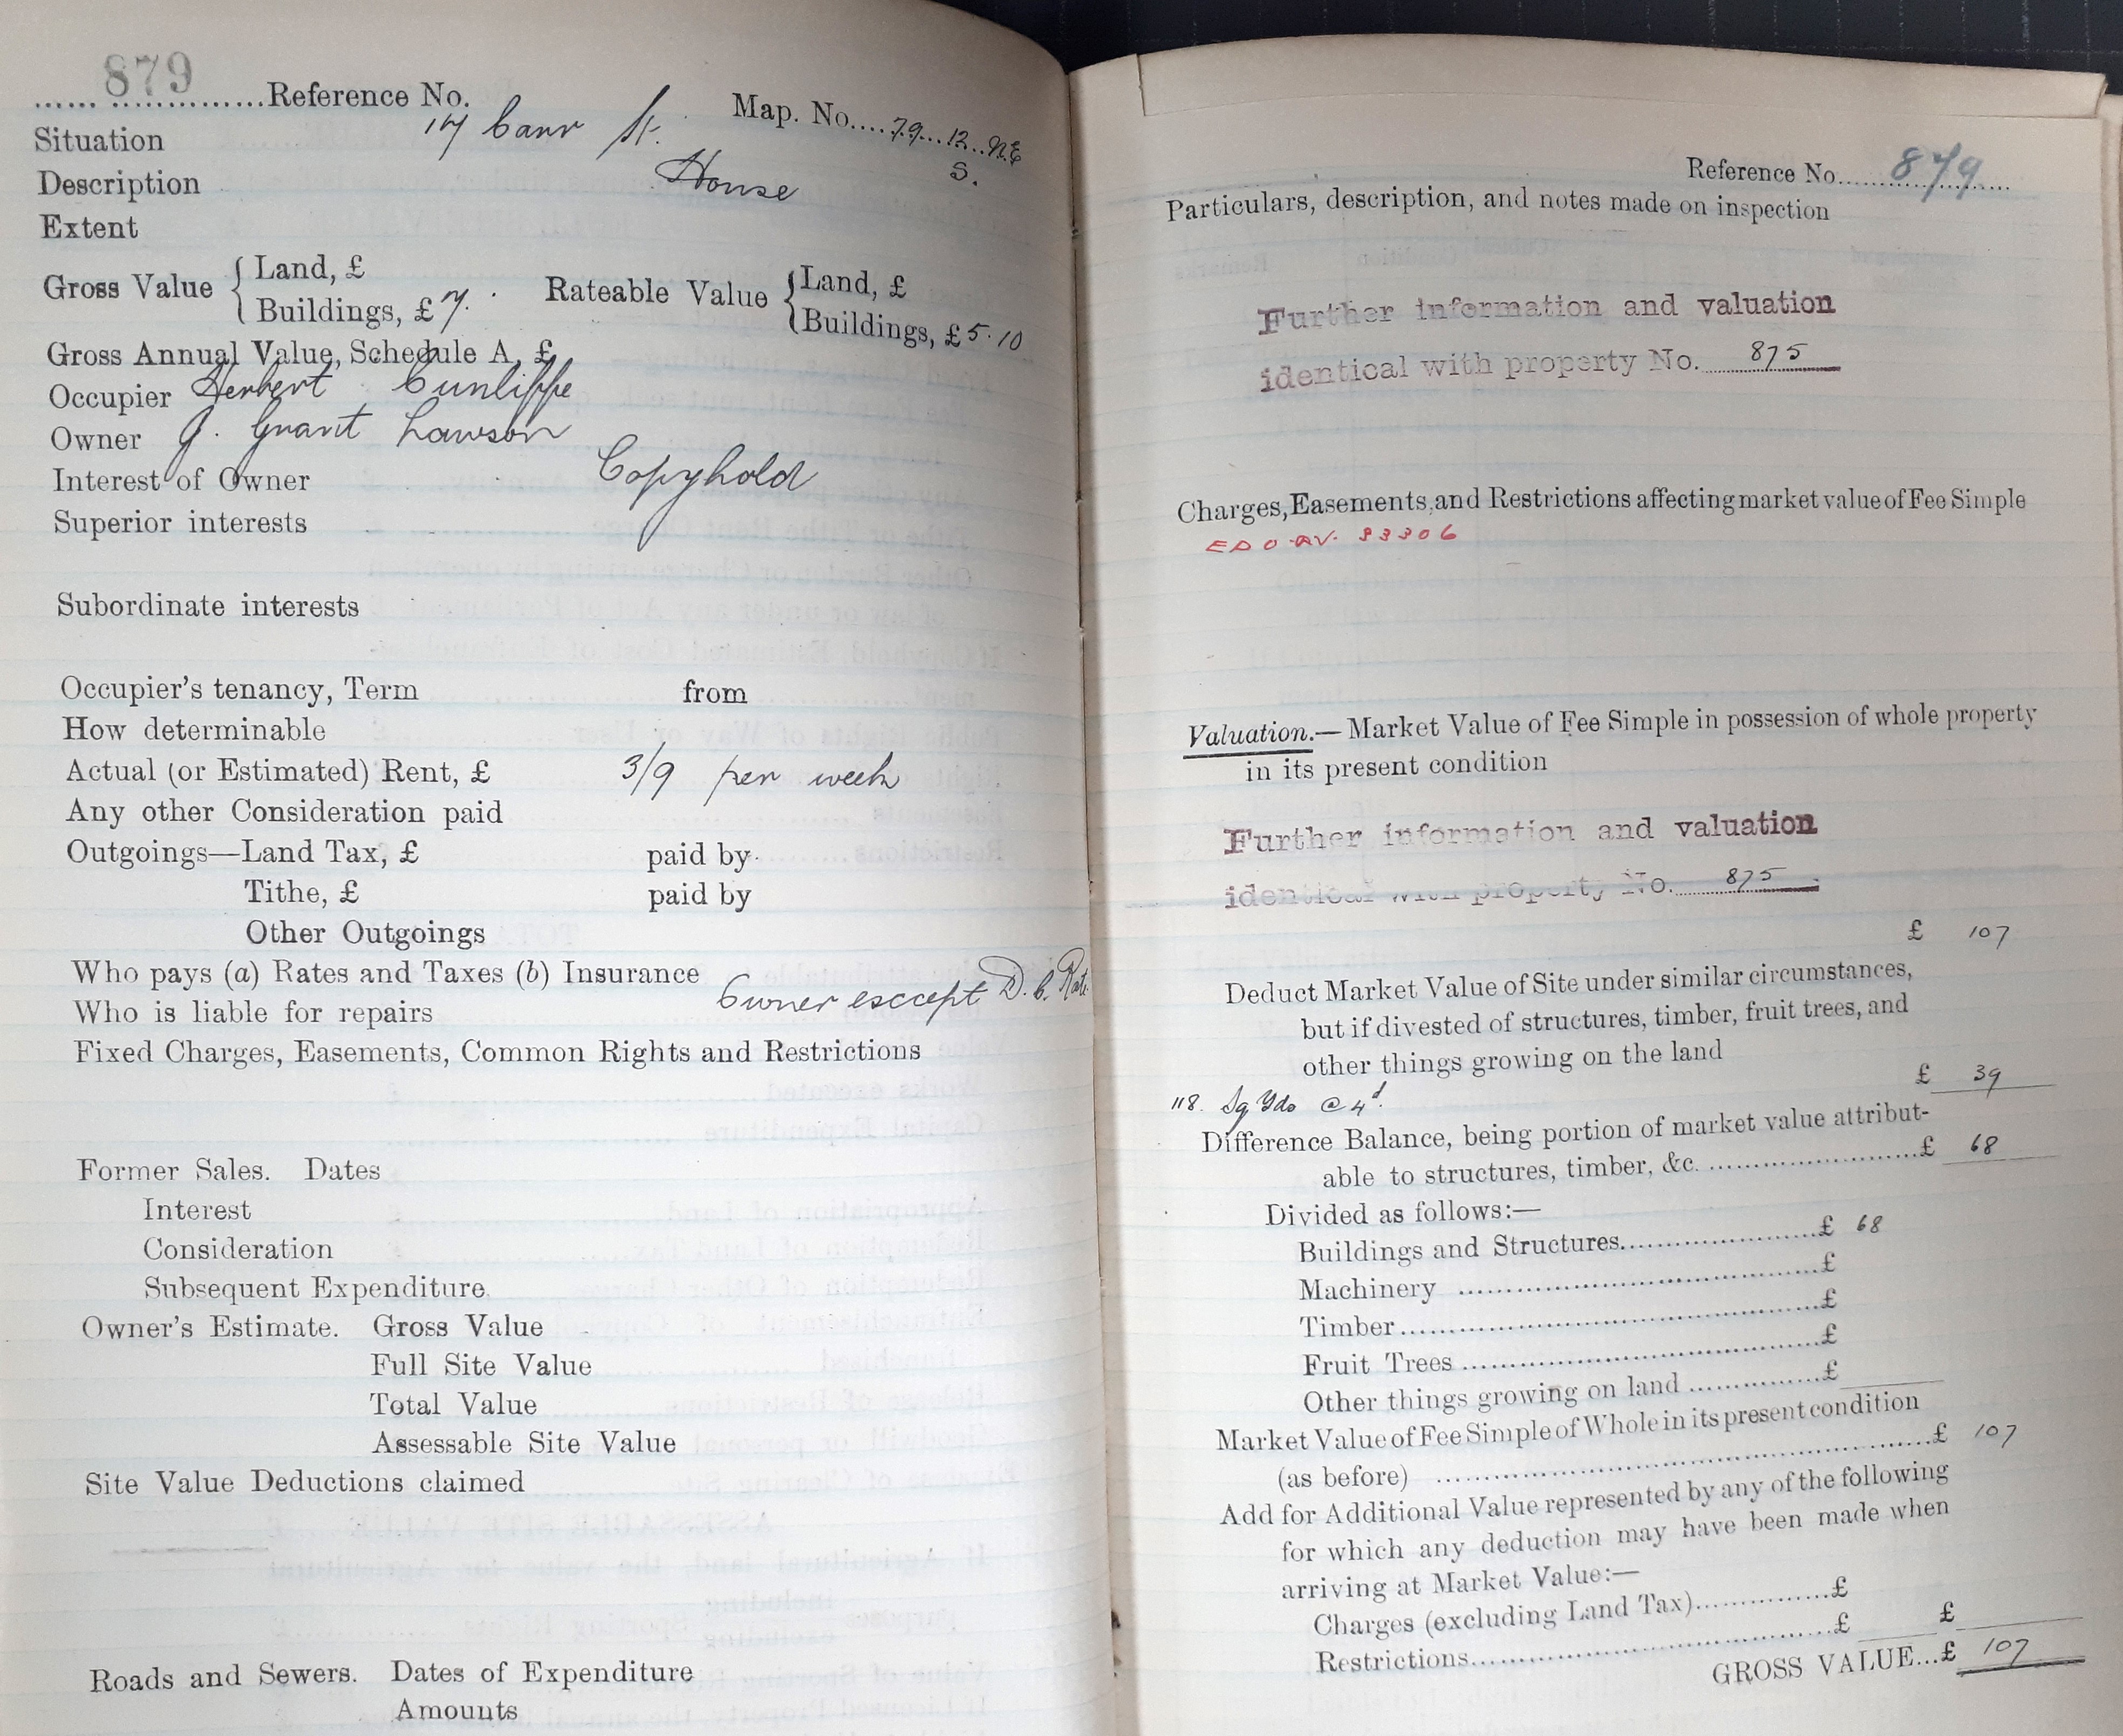 879
Reference No.
Map. No. 79 12 NE
S.
Situation 17 Carr St.
Description House
Extent
Gross Value { Land, £
Buildings, £ 7.
Rateable Value { Land, £
Buildings, £ 5.10
Gross Annual Value, Schedule A, £
Occupier Herbert Cunliffe
Owner J. Grant Lawson
Interest of Owner Copyhold
Superior interests
Subordinate interests
Occupier's tenancy, Term from
How determinable
Actual (or Estimated) Rent, £ 3/9 per week
Any other Consideration paid
Outgoings—Land Tax, £ paid by
Tithe, £ paid by
Other Outgoings
Who pays (a) Rates and Taxes (b) Insurance
Owner except D. C. Rate
Who is liable for repairs
Fixed Charges, Easements, Common Rights and Restrictions
Former Sales. Dates
Interest
Consideration
Subsequent Expenditure
Owner's Estimate. Gross Value
Full Site Value
Total Value
Assessable Site Value
Site Value Deductions claimed
Roads and Sewers. Dates of Expenditure
Amounts
Reference No. 879
Particulars, description, and notes made on inspection
Further information and valuation
identical with property No. 875
Charges, Easements, and Restrictions affecting market value of Fee Simple
83306
Valuation.—Market Value of Fee Simple in possession of whole property
in its present condition
Further information and valuation
identical with property No. 875
£ 107
Deduct Market Value of Site under similar circumstances,
but if divested of structures, timber, fruit trees, and
other things growing on the land
£ 39
118. Sq Yds @ 4d.
Difference Balance, being portion of market value attribut-
able to structures, timber, &c. £ 68
Divided as follows:—
Buildings and Structures £ 68
Machinery £
Timber £
Fruit Trees £
Other things growing on land £
Market Value of Fee Simple of Whole in its present condition
(as before) £ 107
Add for Additional Value represented by any of the following
for which any deduction may have been made when
arriving at Market Value:—
Charges (excluding Land Tax) £
Restrictions £ £
GROSS VALUE...£ 107